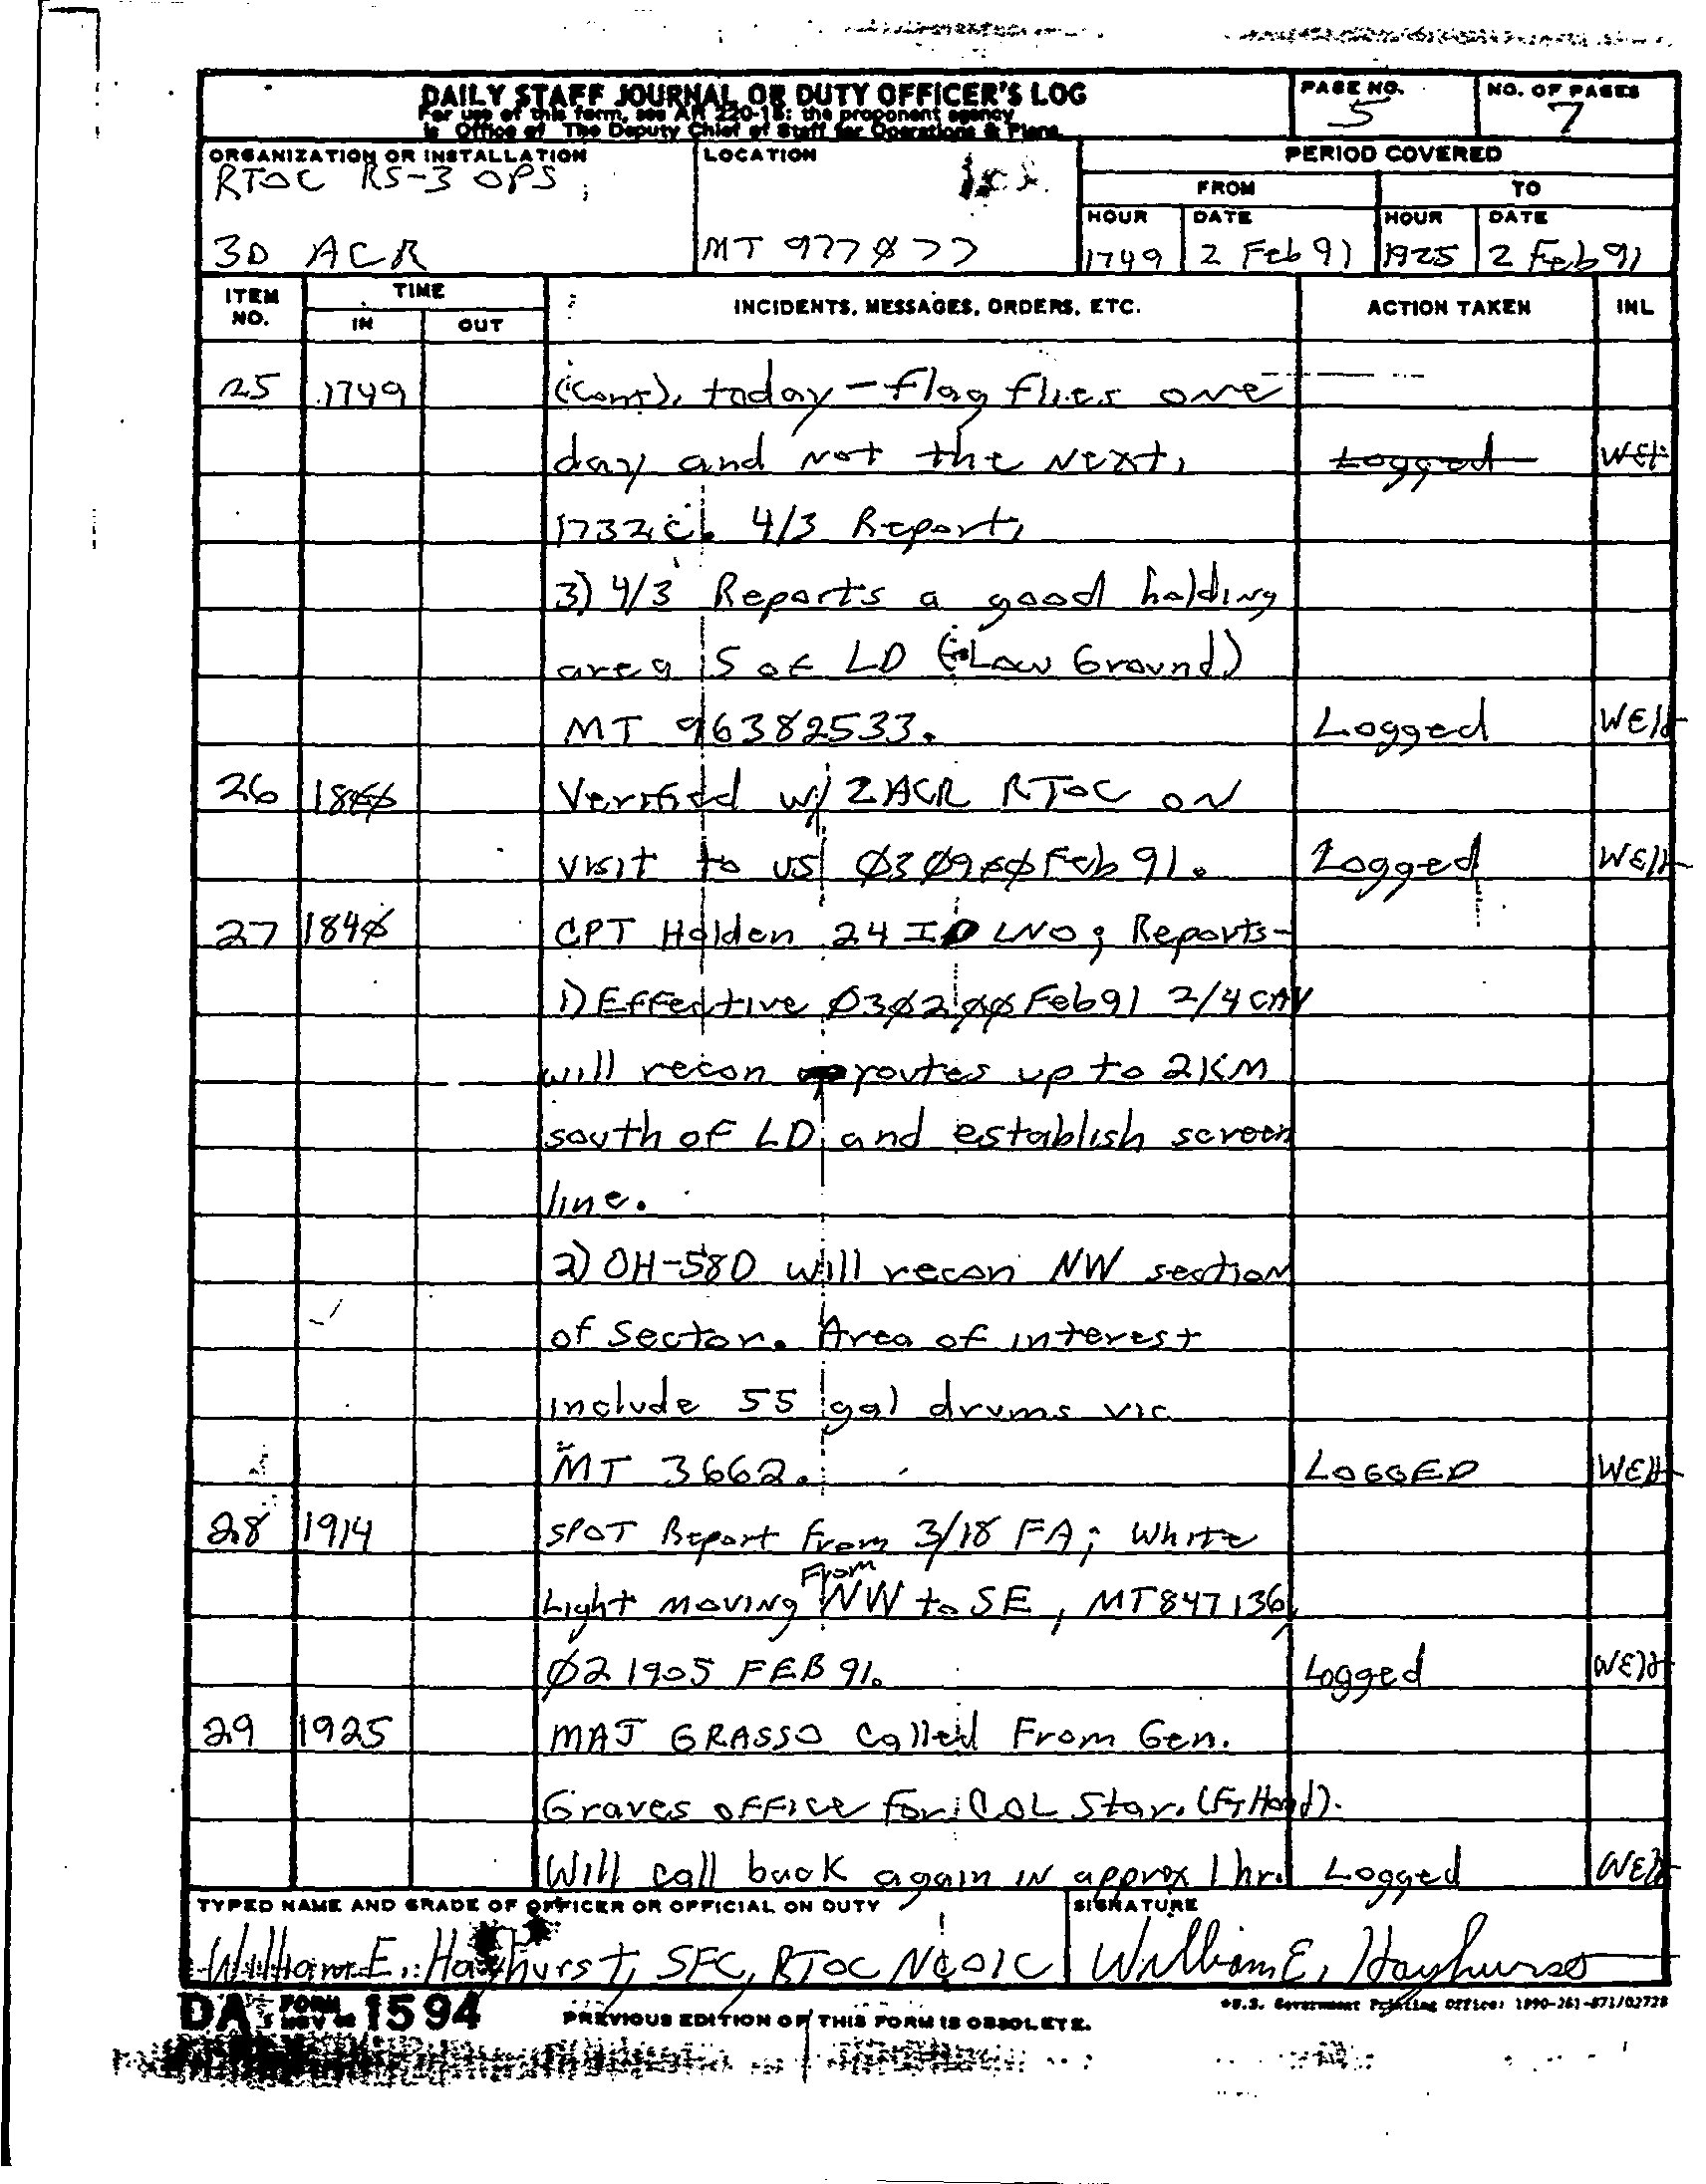 DAILY STAFF JOURNAL OR DUTY OFFICER'S LOG
For use of this form, see AR 220-15: the proponent agency
is Office of The Deputy Chief of Staff for Operations & Plans
PAGE NO.
5
NO. OF PAGES
7
ORGANIZATION OR INSTALLATION
RTOC RS-3 OPS
3D ACR
LOCATION
MT 977Ø77
PERIOD COVERED
FROM
TO
HOUR DATE HOUR DATE
1749 2 Feb 91 1925 2 Feb 91
ITEM NO. TIME INCIDENTS, MESSAGES, ORDERS, ETC. ACTION TAKEN INL
IN OUT
25 1749 (Cont). today - flag flies one
day and not the next. Logged WEH
1732C. 4/3 Report,
3) 4/3 Reports a good holding
area S of LD (Low Ground)
MT 96382533. Logged WEH
26 18ØØ Verified w/ 2ACR RTOC on
visit to us Ø3Ø9ØØ Feb 91. Logged WEH
27 184Ø CPT Holden 24 ID LNO; Reports-
1) Effective Ø3Ø2ØØ Feb 91 2/4 CAV
will recon routes up to 2KM
south of LD and establish screen
line.
2) OH-58D will recon NW section
of Sector. Area of interest
include 55 gal drums vic
MT 3662. LOGGED WEH
28 1914 SPOT Report From 3/18 FA; White
Light moving From NW to SE, MT847136,
Ø2 1905 FEB 91. Logged WEH
29 1925 MAJ GRASSO Called From Gen.
Graves office for COL Star. (Ft Hood).
Will call back again in approx 1 hr. Logged WEH
TYPED NAME AND GRADE OF OFFICER OR OFFICIAL ON DUTY
William E. Hayhurst, SFC, RTOC NCOIC
SIGNATURE
William E. Hayhurst
DA FORM 1594
1 NOV
PREVIOUS EDITION OF THIS FORM IS OBSOLETE.
*U.S. Government Printing Office: 1990-261-871/02728